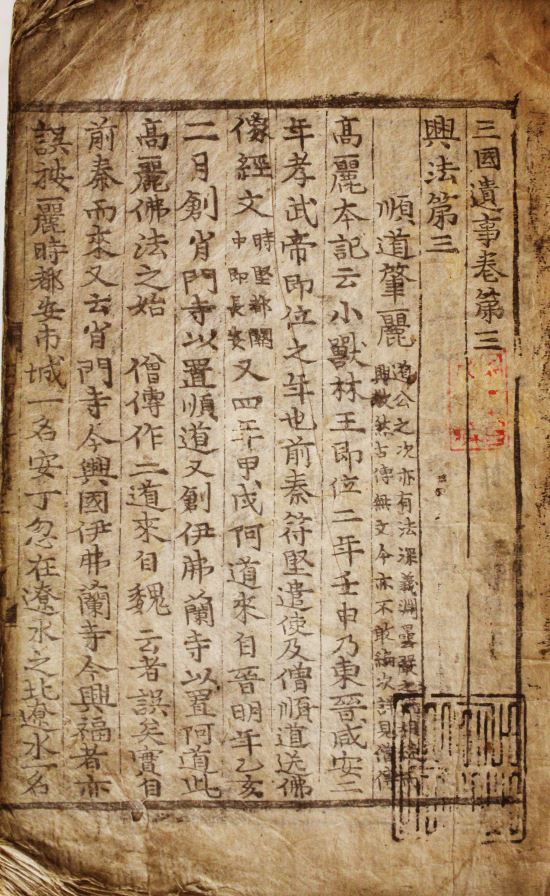 三國遺事卷第三
興法第三
順道肇麗 道公之次亦有法深義淵曇嚴之流相繼而
興教然古傳無文今亦不敢編次詳見僧傳
高麗本記云小獸林王即位二年壬申乃東晉咸安二
年孝武帝即位之年也前秦符堅遣使及僧順道送佛
像經文 時堅都關中即長安 又四年甲戌阿道來自晉明年乙亥
二月創肖門寺以置順道又創伊弗蘭寺以置阿道此
高麗佛法之始 僧傳作二道來自魏 云者誤矣實自
前秦而來又云肖門寺今興國伊弗蘭寺今興福者亦
誤按麗時都安市城一名安丁忽在遼水之北遼水一名